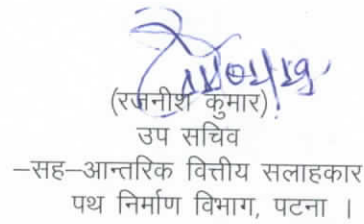 11/01/19
(रजनीश कुमार)
उप सचिव
–सह–आन्तरिक वित्तीय सलाहकार
पथ निर्माण विभाग, पटना ।